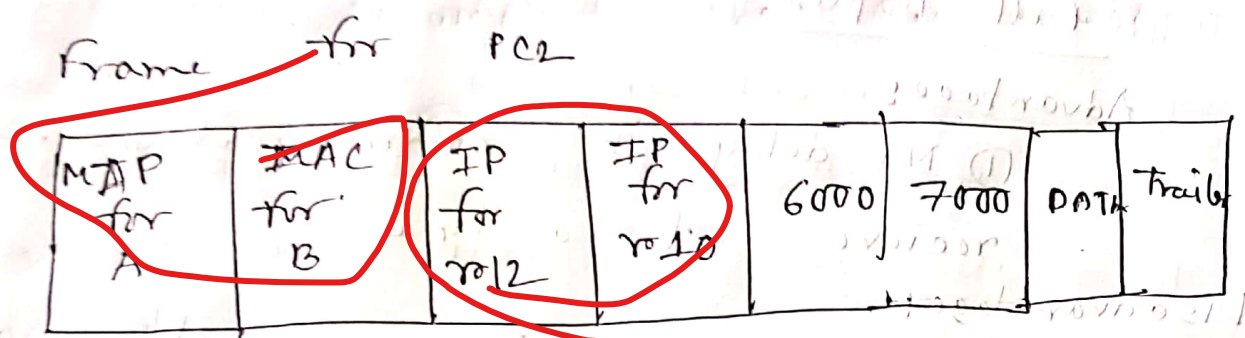 Frame for PC2
MAP for A
MAC for B
IP for no12
IP for no10
6000
7000
DATA
Trailer